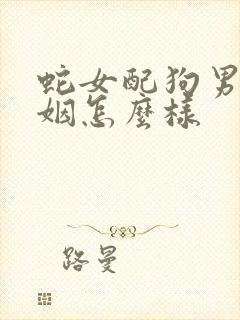 蛇女配狗男
姻怎麼樣
路曼